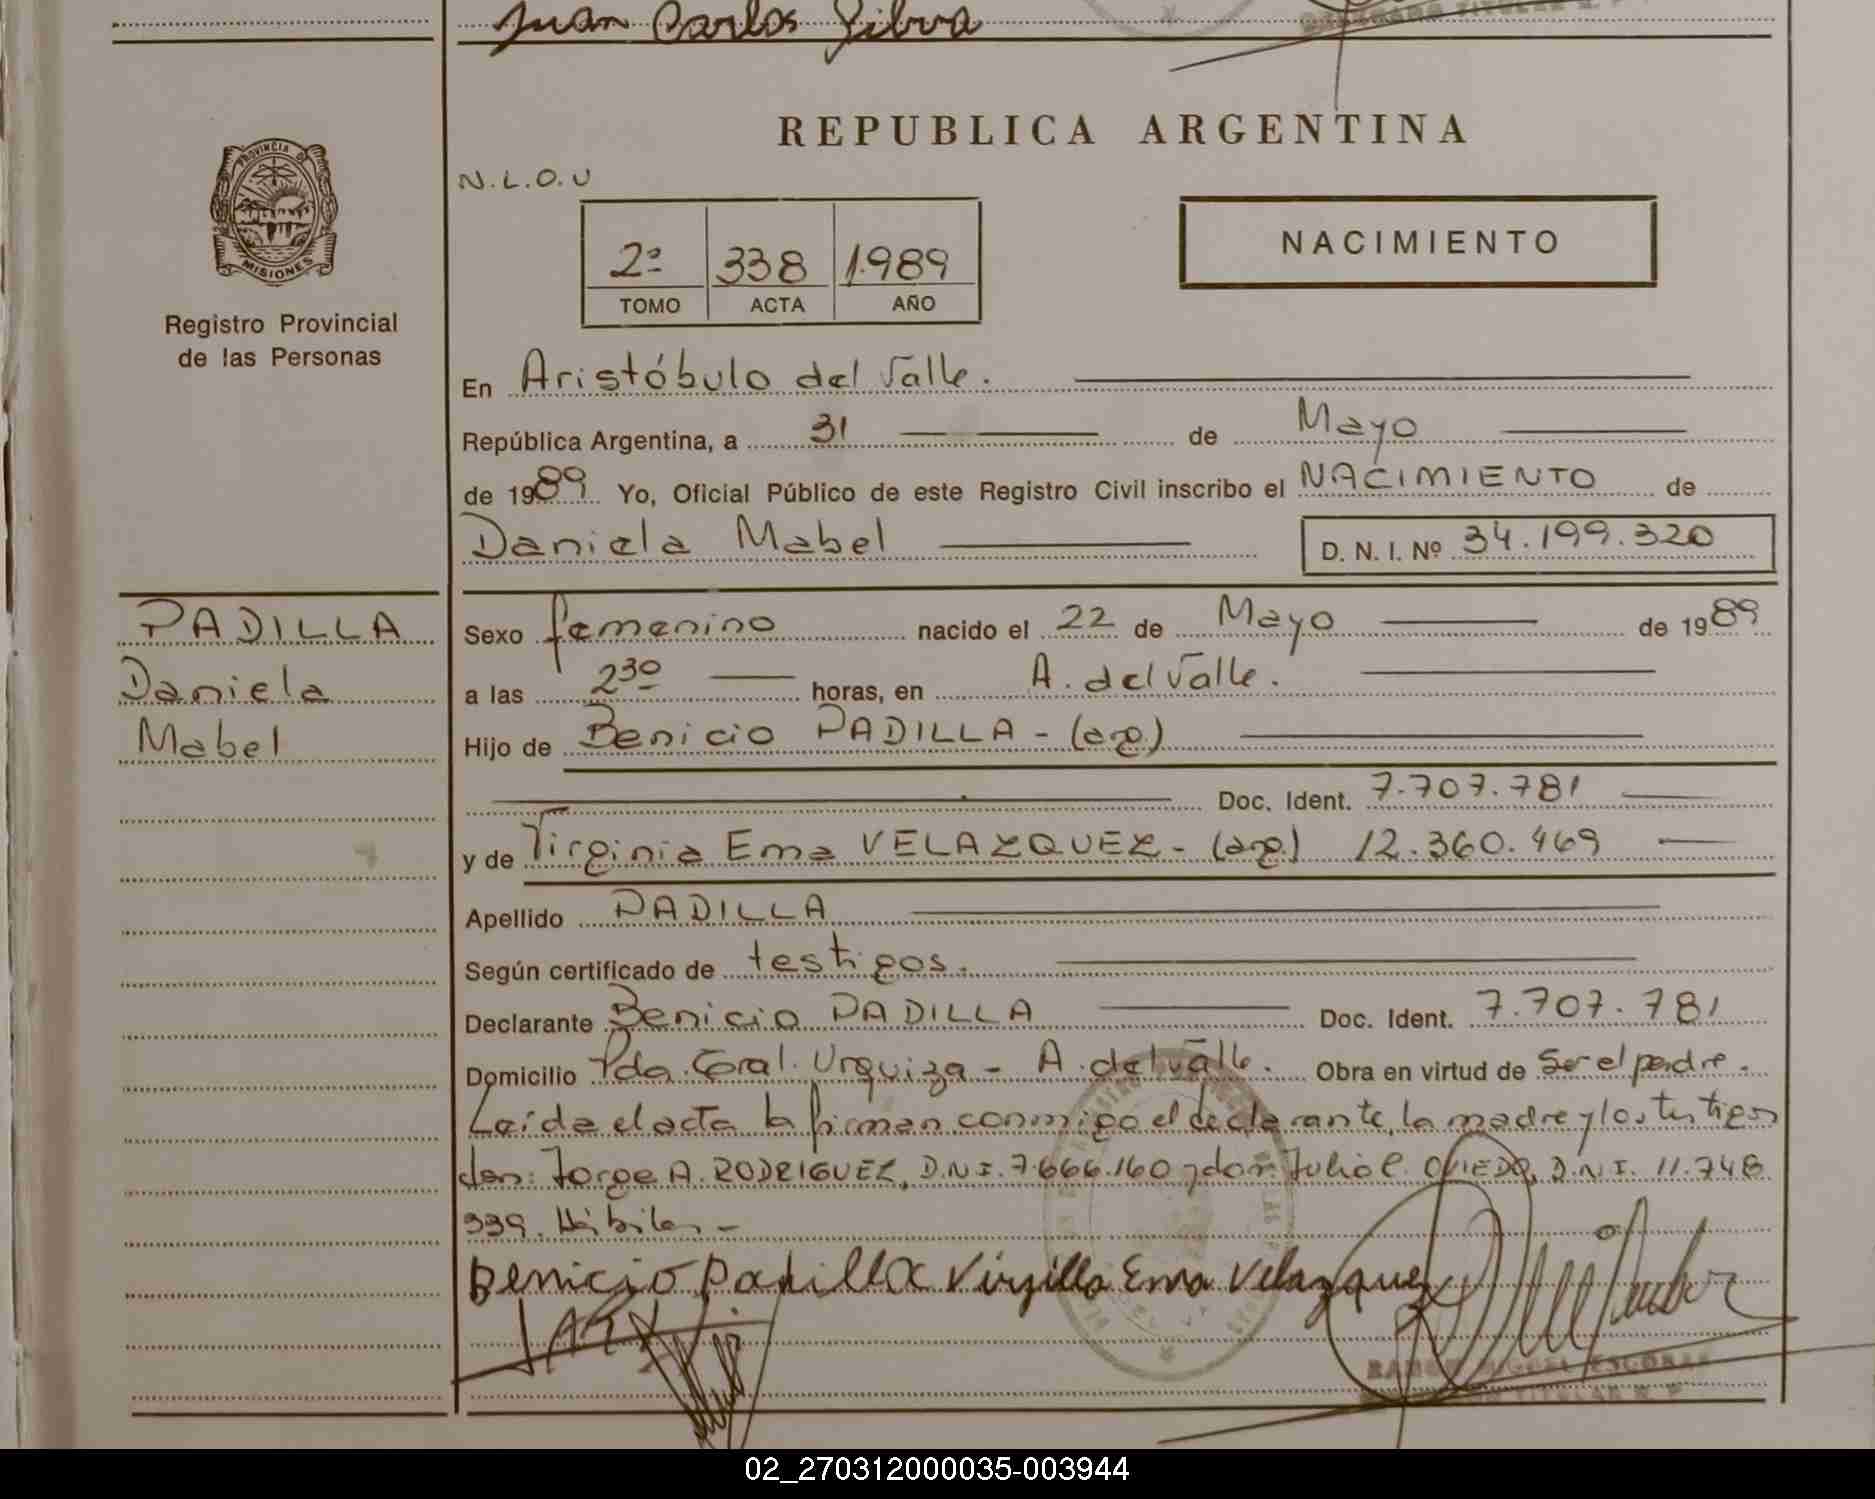 Juan Carlos Silva
REPUBLICA ARGENTINA
PROVINCIA DE
MISIONES
Registro Provincial
de las Personas
N.L.O.U
2º 338 1989
TOMO ACTA AÑO
NACIMIENTO
En Aristóbulo del Valle.
República Argentina, a 31 de Mayo
de 1989 Yo, Oficial Público de este Registro Civil inscribo el NACIMIENTO de
Daniela Mabel D. N. I. Nº 34.199.320
PADILLA
Daniela
Mabel
Sexo femenino nacido el 22 de Mayo de 1989
a las 2 30 horas, en A. del Valle.
Hijo de Benicio PADILLA - (arg)
Doc. Ident. 7.707.781
y de Virginia Ema VELAZQUEZ - (arg) 12.360.469
Apellido PADILLA
Según certificado de testigos.
Declarante Benicio PADILLA Doc. Ident. 7.707.781
Domicilio Pda. Gral. Urquiza - A. del Valle. Obra en virtud de ser el padre.
Leída el acta la firman conmigo el declarante, la madre y los testigos
don: Jorge A. RODRIGUEZ, D.N.I. 7.666.160 y don: Julio C. OVIEDO, D.N.I. 11.748
339. Hábiles -
Benicio Padilla Virgilla Ema Velazquez
RAMON MIGUEL ESCOBAR
02_270312000035-003944